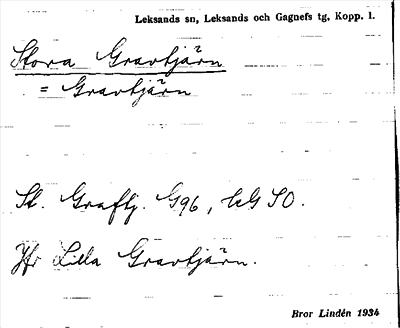 Leksands sn, Leksands och Gagnefs tg, Kopp. l.
Stora Gravtjärn
= Gravtjärn
St. Graftj. G96, SO.
Jfr Lilla Gravtjärn.
Bror Lindén 1934